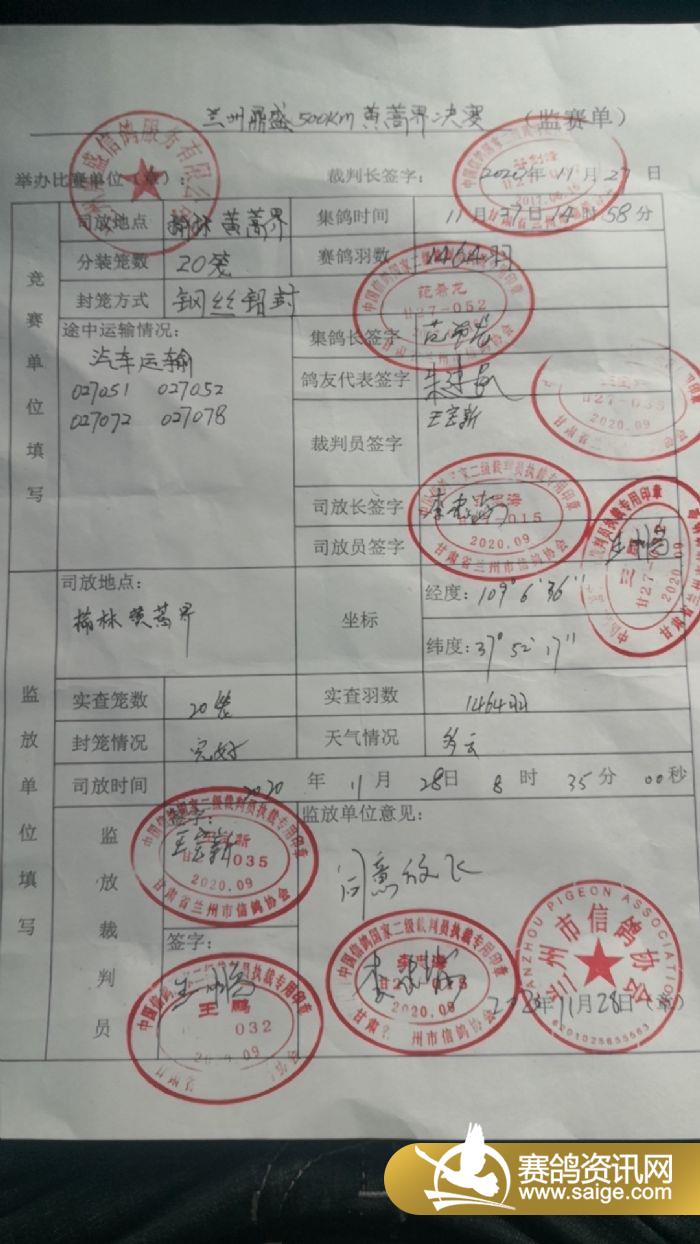 兰州丽盛500km黄蒿界决赛 (监赛单)
举办比赛单位(章): 裁判长签字: 2020年11月27日
竞赛单位填写
司放地点 榆林黄蒿界 集鸽时间 11月27日14时58分
分装笼数 20笼 赛鸽羽数 1464羽
封笼方式 钢丝铅封
途中运输情况:
汽车运输
027051 027052
027072 027078
集鸽长签字 范希龙
鸽友代表签字
裁判员签字 王宝新
司放长签字
司放员签字 王鹏
监放单位填写
司放地点:
榆林黄蒿界
坐标
经度: 109°6′36″
纬度: 37°52′17″
实查笼数 20笼 实查羽数 1464羽
封笼情况 完好 天气情况 多云
司放时间 2020年11月28日8时35分00秒
监放裁判员
签字: 王宝新
签字: 王鹏
监放单位意见:
同意放飞
2020年11月28日(章)
盛信鸽服务有限公
范希龙
甘27-052
中国信鸽国家二级裁判员执裁专用印章
甘肃省兰州市信鸽协会
甘27-035
2020.09
015
2020.09
甘肃省兰州市信鸽协会
甘27-032
2020.09
中国信鸽国家二级裁判员执裁专用印章
035
2020.09
甘肃省兰州市信鸽协会
中国信鸽国家二级裁判员执裁专用印章
王鹏
032
中国信鸽国家二级裁判员执裁专用印章
2020.09
LANZHOU PIGEON ASSOCIATION
兰州市信鸽协会
6201025635563
赛鸽资讯网
www.saige.com